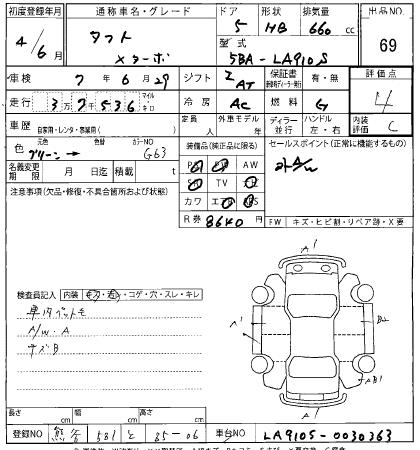 初度登録年月 通称車名・グレード ドア 形状 排気量 出品NO.
4/6月 タフト 5 HB 660 cc 69
メターボ 型式 5BA-LA910S
車検 7年 6月 29 シフト I AT 保証書 有・無 評価点
走行 3万7536 マイル・キロ 冷房 AC 燃料 G 4
車歴 自家用・レンタ・事業用( ) 定員 人 外車モデル 年 ディーラー・並行 ハンドル 左・右 内装評価 C
色 元色 グリーン 色替 カラーNO G63 装備品(純正品に限る) セールスポイント(正常に機能するもの)
名義変更期限 月 日迄 積載 t AW
注意事項(欠品・修復・不具合箇所および状態) TV
カワ
R券 8640円 FW キズ・ヒビ割・リペア跡・X要
A1
検査員記入 内装 キズ・汚・コゲ・穴・スレ・キレ
A/W.A A1 B2
キズB AB1
A1
長さ cm 幅 cm 高さ cm
登録NO 581 と 85-06 車台NO LA910S-0030363